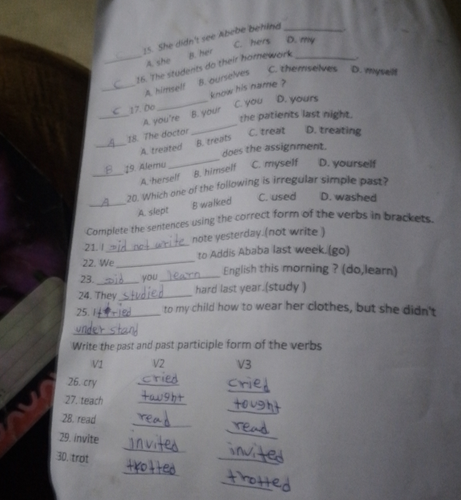 ______15. She didn't see Abebe behind __________.
A. she B. her C. hers D. my
___C___16. The students do their homework __________.
A. himself B. ourselves C. themselves D. myself
___C___17. Do __________ know his name ?
A. you're B. your C. you D. yours
___A___18. The doctor __________ the patients last night.
A. treated B. treats C. treat D. treating
___B___19. Alemu __________ does the assignment.
A. herself B. himself C. myself D. yourself
___A___20. Which one of the following is irregular simple past?
A. slept B walked C. used D. washed
Complete the sentences using the correct form of the verbs in brackets.
21. I did not write note yesterday.(not write )
22. We __________ to Addis Ababa last week.(go)
23. did you learn English this morning ? (do,learn)
24. They studied hard last year.(study )
25. I tried to my child how to wear her clothes, but she didn't
under stand
Write the past and past participle form of the verbs
V1 V2 V3
26. cry cried cried
27. teach taught tought
28. read read read
29. invite invited invited
30. trot trotted trotted